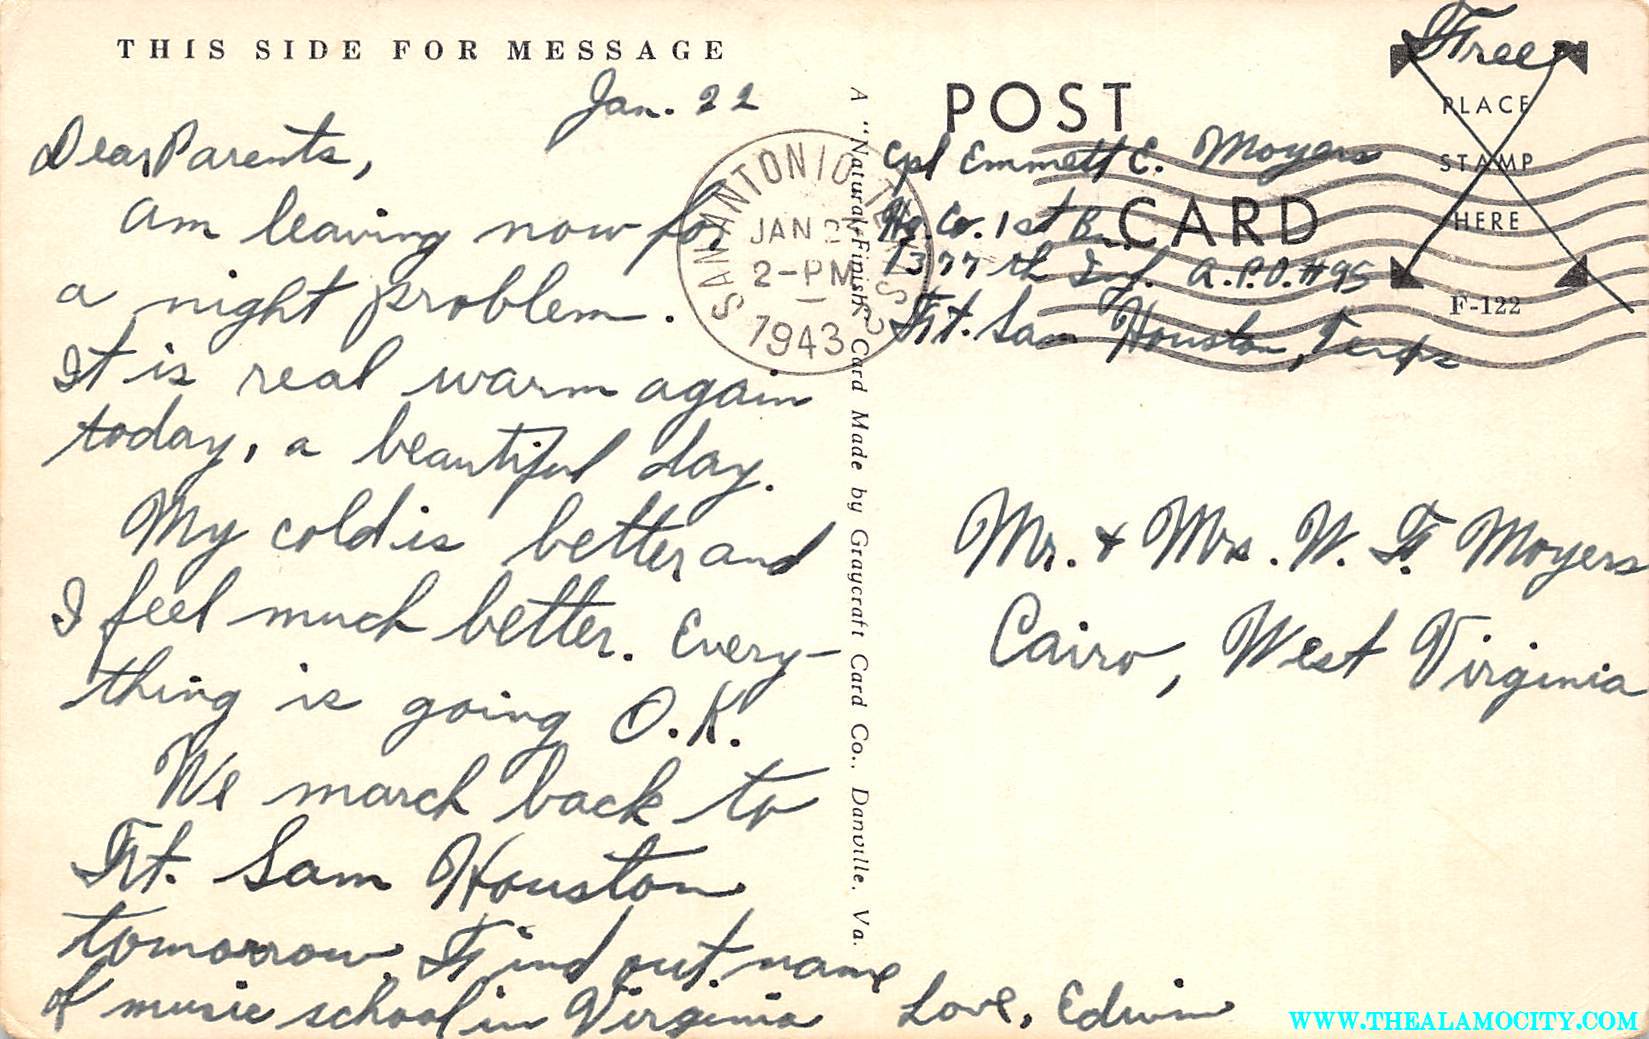 THIS SIDE FOR MESSAGE
Jan. 22
Dear Parents,
Am leaving now for
a night problem.
It is real warm again
today, a beautiful day.
My cold is better and
I feel much better. Every-
thing is going O.K.
We march back to
Ft. Sam Houston
tomorrow. Find out name
of music school in Virginia
Love, Edwin
A "Natural-Finish" Card Made by Graycraft Card Co., Danville, Va.
SAN ANTONIO
JAN
2-PM
1943
POST
CARD
Free
PLACE
STAMP
HERE
F-122
Cpl Emmett E. Moyers
Hq. Co. 1st Bn.
377th Inf. A.P.O. #95
Ft. Sam Houston, Texas
Mr. & Mrs. W. F. Moyers
Cairo, West Virginia
WWW.THEALAMOCITY.COM